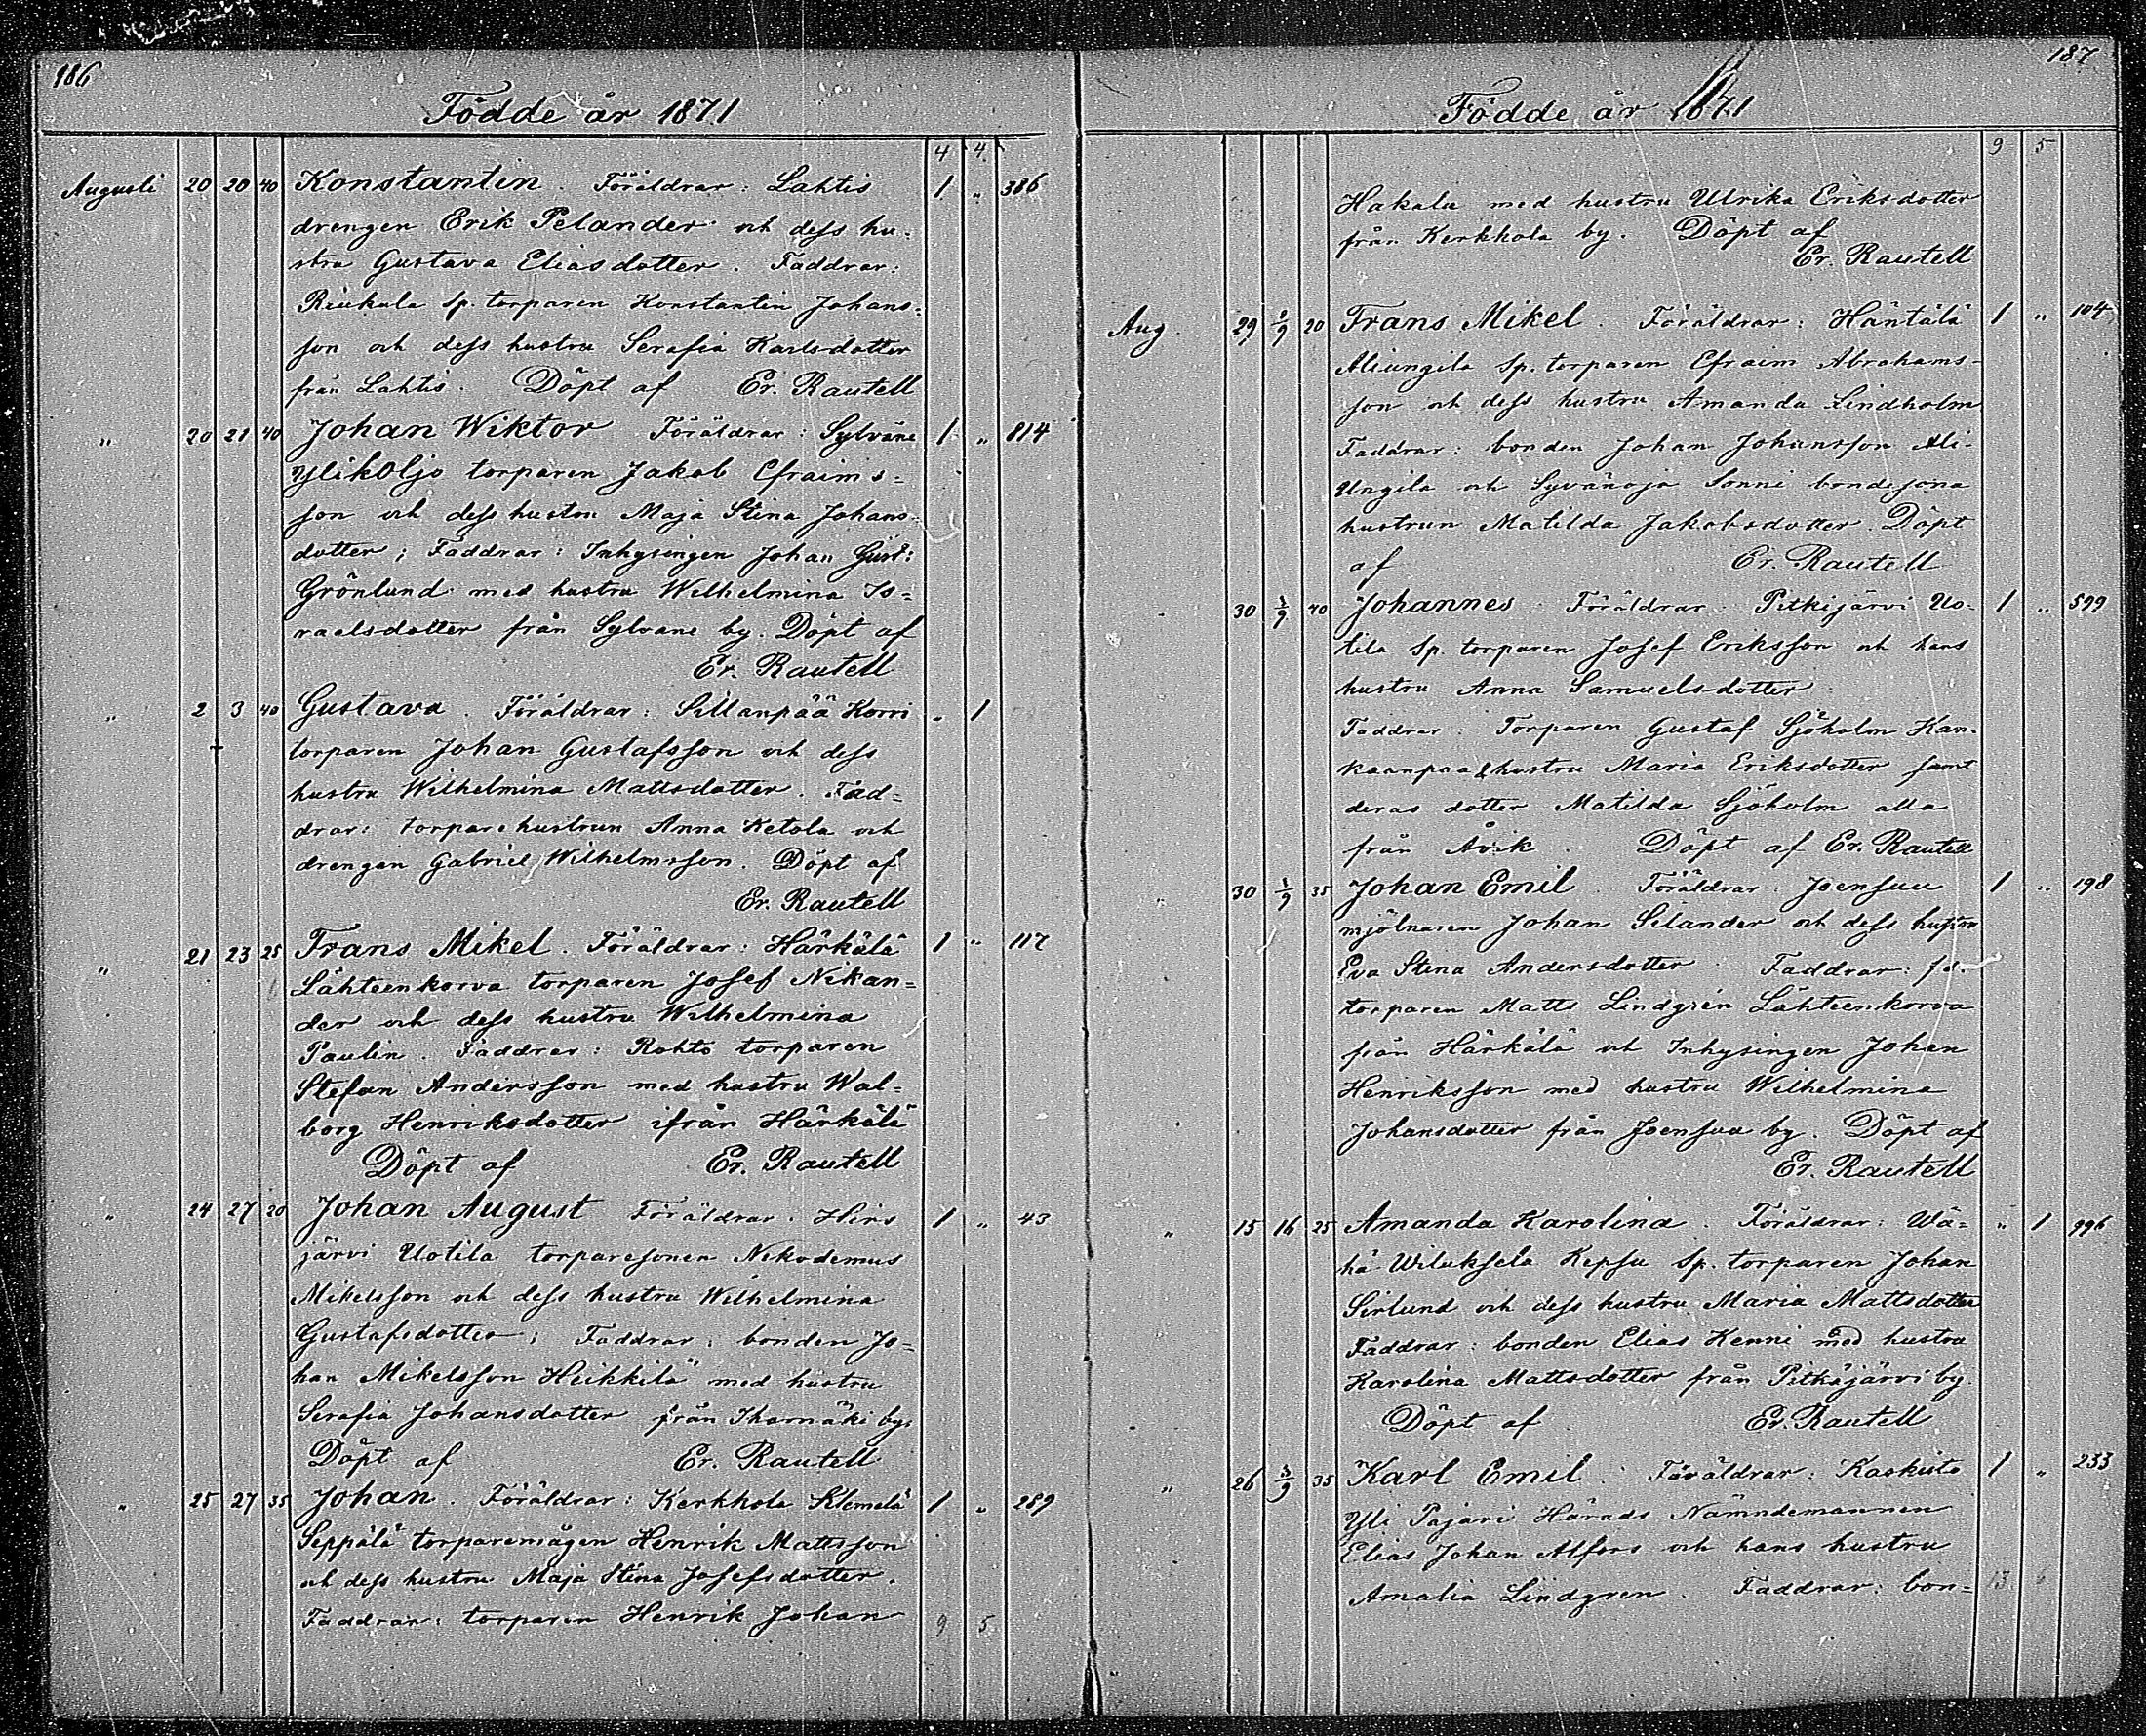 186
Födde år 1871
4 4
Augusti 20 20 40 Konstantin. Föräldrar: Lahtis 1 „ 386
drengen Erik Pelander och dess hu=
stru Gustava Eliasdotter. Faddrar:
Riukula sp. torparen Konstantin Johans=
son och dess hustru Serafia Karlsdotter
från Lahtis. Döpt af Er. Rautell
„ 20 21 40 Johan Wiktor Föräldrar: Sylväne 1 „ 814
Ylikoljo torparen Jakob Efraims=
son och dess hustru Maja Stina Johans=
dotter; Faddrar: Inhysingen Johan Gust:
Grönlund med hustru Wilhelmina Is=
raelsdotter från Sylvane by. Döpt af
Er. Rautell
„ 2 3 40 Gustava. Föräldrar: Sillanpää Korri „ 1
torparen Johan Gustafsson och dess
hustru Wilhelmina Mattsdotter. Fad=
drar: torparehustrun Anna Ketola och
drengen Gabriel Wilhelmsson. Döpt af
Er. Rautell
„ 21 23 25 Frans Mikel. Föräldrar: Härkälä 1 „ 117
Lähteenkorva torparen Josef Nikan=
der och dess hustru Wilhelmina
Paulin. Faddrar: Rohto torparen
Stefan Andersson med hustru Wal=
borg Henriksdotter ifrån Härkälä
Döpt af Er. Rautell
„ 24 27 20 Johan August Föräldrar: Hirs 1 „ 43
järvi Uotila torparesonen Nikodemus
Mikelsson och dess hustru Wilhelmina
Gustafsdotter; Faddrar: bonden Jo=
han Mikelsson Heikkilä med hustru
Serafia Johansdotter från Ihamäki by,
Döpt af Er. Rautell
„ 25 27 35 Johan. Föräldrar: Kerkhola Klemelä 1 „ 289
Seppälä torparemågen Henrik Mattsson
och dess hustru Maja Stina Josefsdotter.
Faddrar: torparen Henrik Johan 9 5
187
Födde år 1871
9 5
Hakala med hustru Ulrika Eriksdotter
från Kerkhola by. Döpt af
Er. Rautell
Aug. 29 2/9 20 Frans Mikel. Föräldrar: Häntälä 1 „ 104
Aliungila Sp. torparen Efraim Abrahams-
son och dess hustru Amanda Lindholm
Faddrar: bonden Johan Johansson Ali-
Ungila och Syvänoja Sonni bondesona
hustrun Matilda Jakobsdotter. Döpt
af Er. Rautell
30 3/9 40 Johannes. Föräldrar: Pitkijärvi Uo- 1 „ 599
tila Sp. torparen Josef Eriksson och hans
hustru Anna Samuelsdotter.
Faddrar: Torparen Gustaf Sjöholm Kan-
kaanpaa & hustru Maria Eriksdotter samt
deras dotter Matilda Sjöholm alla
från Åvik. Döpt af Er. Rautell
„ 30 1/9 35 Johan Emil. Föräldrar: Joensuu 1 „ 198
mjölnaren Johan Selander och dess hustru
Eva Stina Andersdotter. Faddrar: fd.
torparen Matts Lindgrén Lähteenkorva
från Härkälä och Inhysingen Johan
Henriksson med hustru Wilhelmina
Johansdotter från Joensuu by. Döpt af
Er. Rautell
„ 15 16 25 Amanda Karolina. Föräldrar: Wä= „ 1 996
hä Wiluksela Kepsu Sp. torparen Johan
Sirlund och dess hustru Maria Mattsdotter
Faddrar: bonden Elias Kenni med hustru
Karolina Mattsdotter från Pitkäjärvi by.
Döpt af Er. Rautell
„ 26 3/9 35 Karl Emil. Föräldrar: Raskuts 1 „ 233
Yli Pajari Härads Nämndemannen
Elias Johan Alfors och hans hustru
Amalia Lindgren. Faddrar: bon= 13